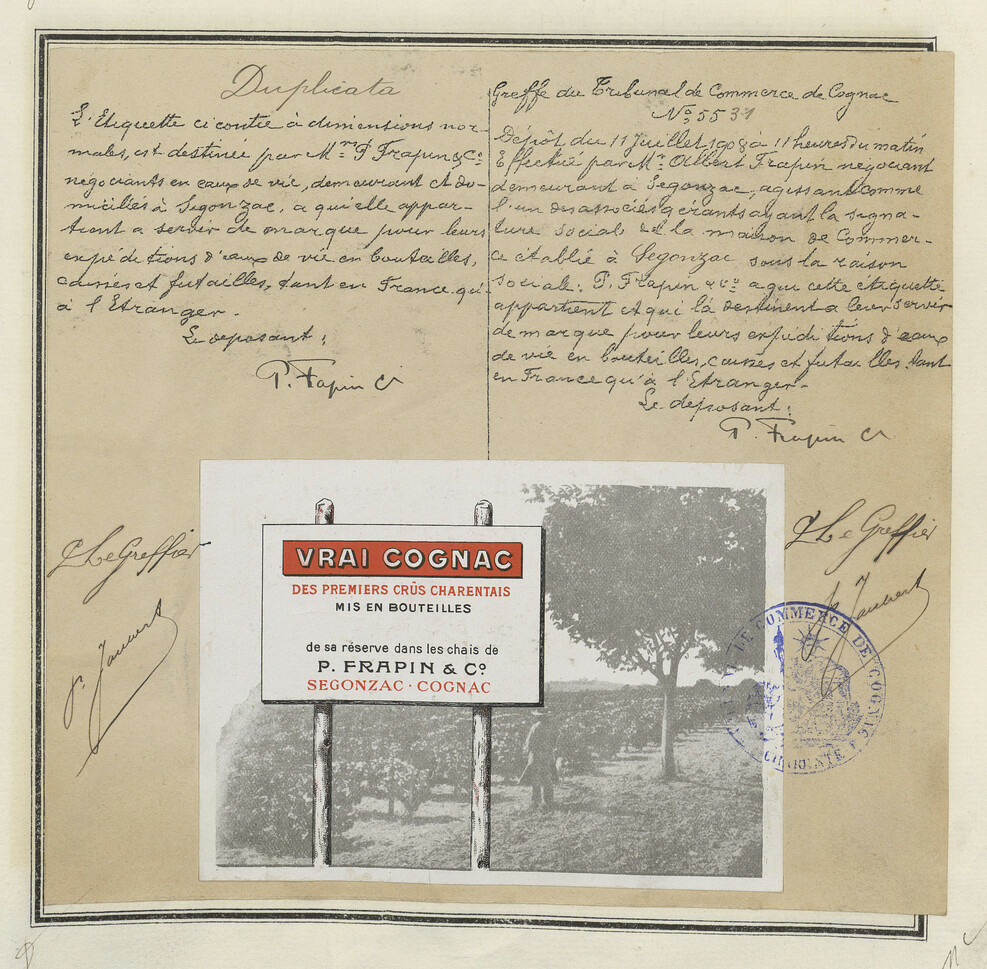 Duplicata
L'Etiquette ci contre à dimensions nor-
males, est destinée par Mrs P. Frapin & Co
négociants en eaux de vie, demeurant et do-
miciliés à Segonzac, a qu'elle appar-
tient a servir de marque pour leurs
expéditions d'eaux de vie en bouteilles,
caisses et futailles, tant en France qu'
à l'Etranger.
Le deposant :
P. Frapin Co
Greffe du Tribunal de Commerce de Cognac
No 5531
Dépôt du 11 Juillet 1908 à 11 heures du matin
Effectué par Mr Albert Frapin négociant
demeurant à Segonzac, agissant comme
l'un des associés gérants ayant la signa-
ture social de la maison de Commer-
ce établie à Segonzac sous la raison
sociale : P. Frapin & Co a qui cette étiquette
appartient et qui la destinent a leur servir
de marque pour leurs expéditions d'eaux
de vie en bouteilles, caisses et futailles tant
en France qu'à l'Etranger.
Le déposant :
P. Frapin Co
Le Greffier
Le Greffier
VRAI COGNAC
DES PREMIERS CRÛS CHARENTAIS
MIS EN BOUTEILLES
de sa réserve dans les chais de
P. FRAPIN & Co
SEGONZAC · COGNAC
DE COMMERCE DE COGNAC
CHARENTE